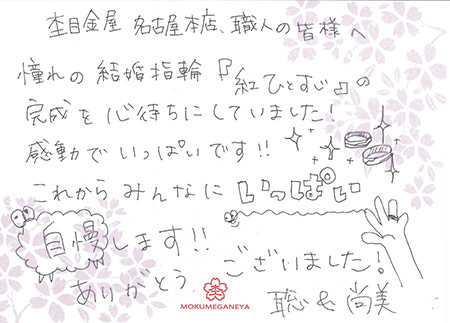 杢目金屋 名古屋本店、職人の皆様へ
憧れの結婚指輪『紅ひとすじ』の
完成を心待ちにしていました!
感動でいっぱいです!!
これからみんなにいっぱい
自慢します!!
ありがとうございました!
MOKUMEGANEYA
聡&尚美